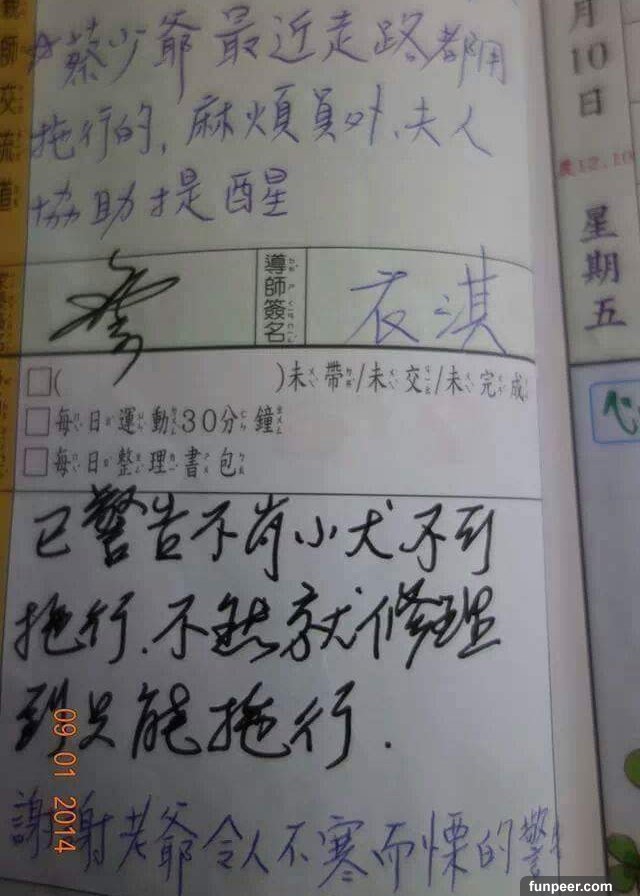 師交流道
☆蔡少爺最近走路都用
拖行的,麻煩員外、夫人
協助提醒
導師簽名
衣淇
□( )未帶/未交/未完成
□每日運動30分鐘
□每日整理書包
已警告不肖小犬不可
拖行.不然就修理
到只能拖行.
謝謝老爺令人不寒而慄的警
09 01 2014
月10日
農12.10
星期五
心
funpeer.com